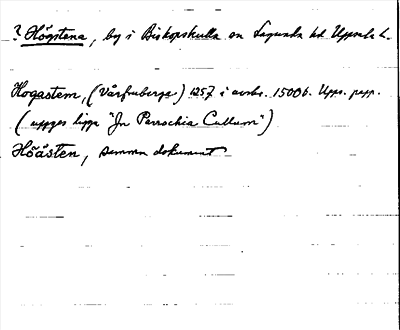 ? Högstena, by i Biskopskulla sn Lagunda hd Uppsala l.
Hogastem, (Vårfruberga) 1257 i avskr. 1500 b. Upps. papp.
(uppges ligga "Jn Parrochia Cullum")
Höåsten, samma dokument